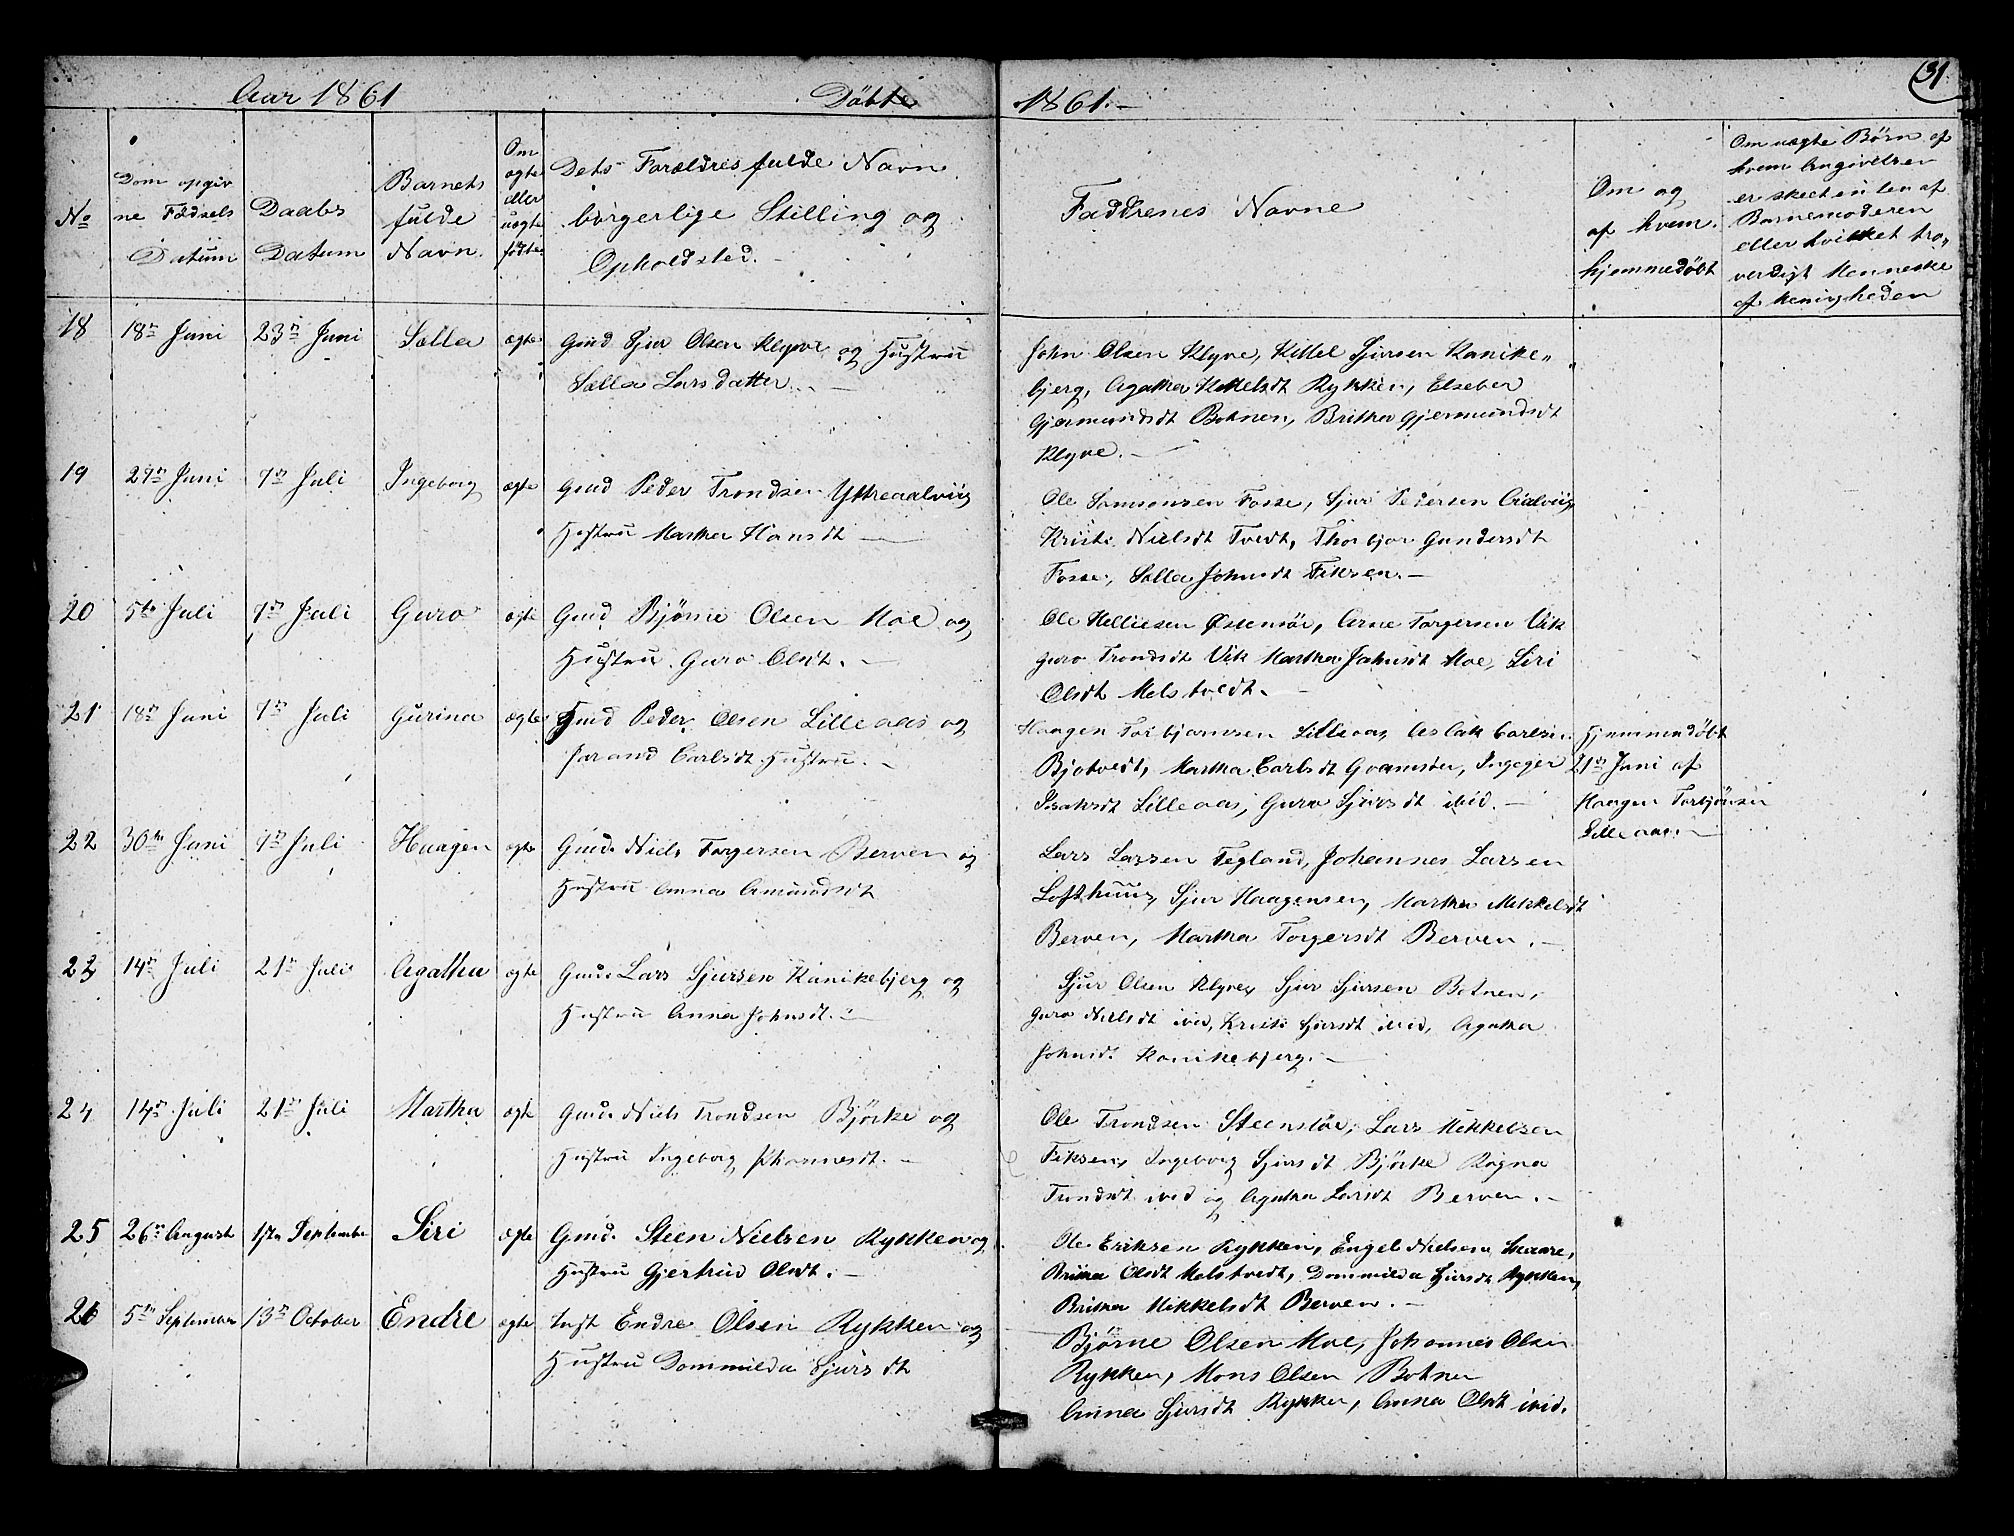 Aar 1861
Döbte
1861.-
31
No
Dom opgiv
ne Födsels
Datum
Daabs
Datum
Barnets
fulde
Navn.
Om
ægte
eller
uægte
födte
Dets Forældres fulde Navn
borgerlige Stilling og
Opholdsted.-
Faddrenes Navne
Om og
af hvem
hjemmedöbt
Om uægte Börn af
hvem Angivelsen
er skeet enten af
Barnemoderen
eller hvilket tro„
værdigt Menneske
af Menigheden
18
18n Juni
23n Juni
Sella
ægte
Gmd Sjur Olsen Klyve og Hustru
Sella Larsdatter.-
John Olsen Klyve, Kittel Sjursen Kanike„
bjerg, Agatha Mikkelsdt Rykken, Elseber
Gjermundsdt Botnen, Britha Gjermundsdt
Klyve.-
19
29n Juni
7n Juli
Ingeborg
ægte
Gmd Peder Trondsen Yttreaalviig
Hustru Martha Hansdt
Ole Samsonsen Fosse, Sjur Pedersen Aalviig
Kristi Nielsdt Tvedt, Thorbjør Gundersdt
Fosse, Sella Johnsdt Fiksen.-
20
5te Juli
7n Juli
Guro
ægte
Gmd Bjørne Olsen Moe og
Hustru Guro Olsdt.-
Ole Helliesen Østensöe, Arne Torgersen Vik
Guro Trondsdt Vik Martha Johnsdt Moe, Siri
Olsdt Melstvedt.
21
18n Juni
7n Juli
Gurina
ægte
Gmd Peder Olsen Lilleaas og
Jorand Carlsdt Hustru.-
Haagen Torbjørnsen Lilleaas Aslak Carlsen
Bjotvedt, Martha Carlsdt Qvamsöe, Ingeger
Isaksdt Lilleaas, Guro Sjursdt ibid.-
Hjemmedöbt
21n Juni af
Haagen Torbjönsen
Lilleaas.-
22
30te Juni
7n Juli
Haagen
ægte
Gmd. Niels Torgersen Berven og
Hustru Anna Amundsdt
Lars Larsen Tegland, Johannes Larsen
Lofthuus, Sjur Haagensen, Martha Mikkelsdt
Berven, Martha Torgersdt Berven.-
23
14n Juli
21n Juli
Agatha
ægte
Gmd. Lars Sjursen Kanikebjerg og
Hustru Anna Johnsdt.-
Sjur Olsen Klyve, Sjur Sjursen Botnen,
Guro Nielsdt ibid, Kristi Sjursdt ibid, Agatha
Johnsdt Kanikebjerg.-
24
14n Juli
21n Juli
Martha
ægte
Gmd. Niels Trondsen Bjørke og
Hustru Ingeborg Johannesdt.-
Ole Trondsen Steenstöe, Lars Mikkelsen
Fiksen, Ingeborg Sjursdt Bjørke Ragna
Trondsdt ibid og Agatha Larsdt Berven.-
25
26n August
1ste September
Siri
ægte
Gmd. Steen Nielsen Rykken og
Hustru Gjertrud Olsdt.-
Ole Eriksen Rykken, Engel Nielsen Skaare,
Britha Olsdt Melstvedt, Dommilda Sjursdt Rykken,
Britha Mikkelsdt Berven.-
26
5te September
13n October
Endre
ægte
Inst Endre Olsen Rykken og
Hustru Dommilda Sjursdt
Bjørne Olsen Moe, Johannes Olsen
Rykken, Mons Olsen Botnen
Anna Sjursdt Rykken, Anna Olsdt ibid.